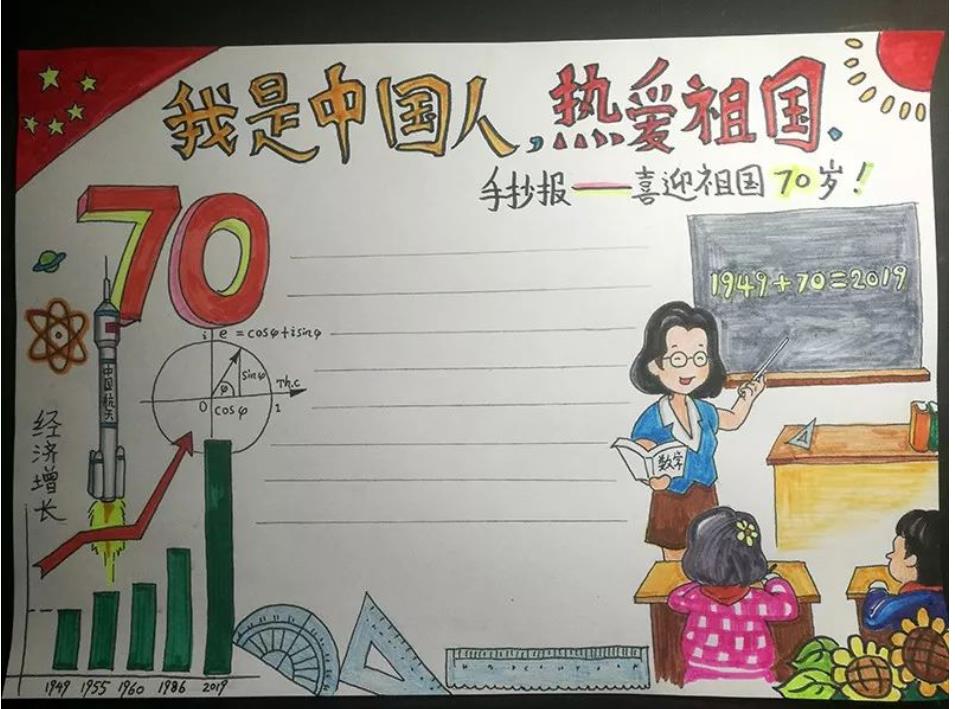 我是中国人,热爱祖国、
手抄报——喜迎祖国70岁!
70
1949+70=2019
i e = cosφ+isinφ
sinφ
Th.c
φ
0 cosφ 1
中国航天
经济增长
数字
1949 1955 1960 1986 2019